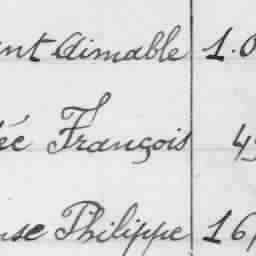 ant Aimable 1.0
ée François 45
use Philippe 16